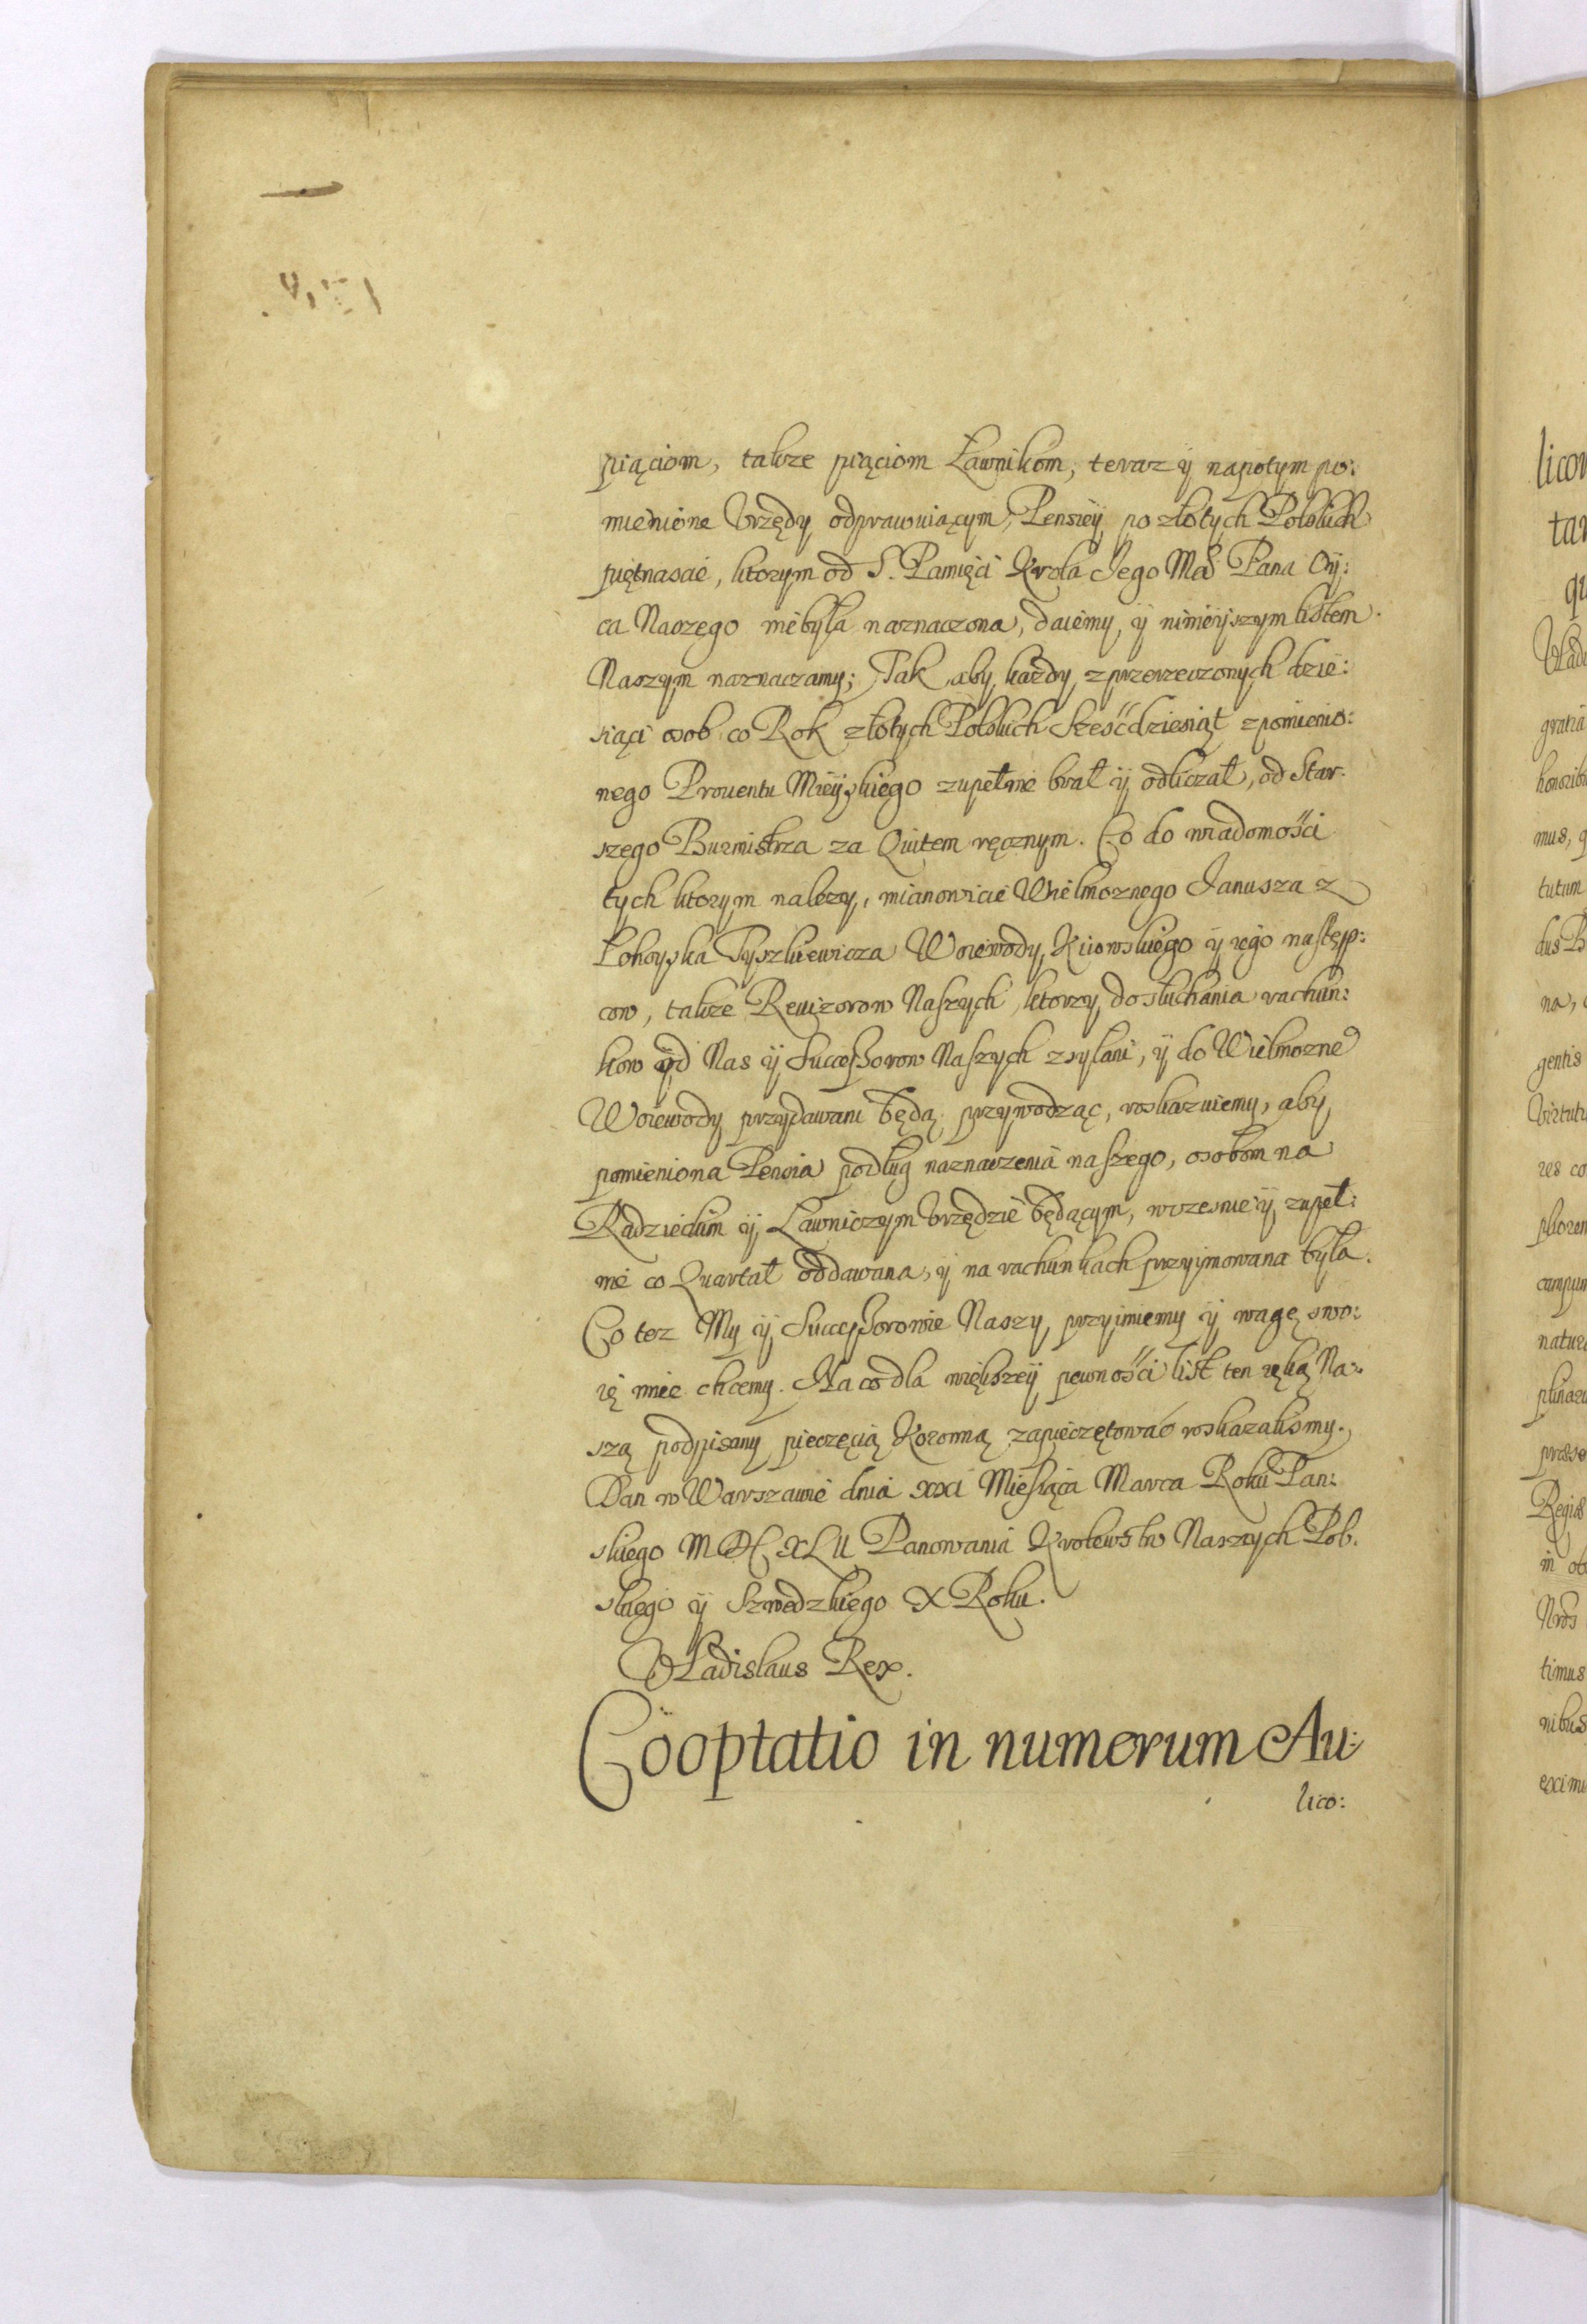 piąciom, takze piąciom Ławnikom, teraz ÿ napotym po:
mienione Vrzędy odprawuiącym, Pensiey po złotych Polskich
piętnascie, ktorym od S. Pamięci Krola Jego Mści Pana Oÿ:
ca Naszego niebyła naznaczona, daiemy, ÿ ninieÿszym listem
Naszym naznaczamy; Tak aby każdy zprzerzeczonych dzie:
siąci osob co Rok złotych Polskich Sześćdziesiąt zpomienio:
nego Prouentu Mieÿskiego zupełnie brał ÿ odliczał, od Star:
szego Burmistrza za Quitem ręcznym. Co do wiadomości
tych ktorym nalezy, mianowicie Wielmoznego Janusza z
Łohoyska Tyszkiewicza Woiewody Kiiowskiego ÿ iego następ:
cow, takze Rewizorow Naszych, ktorzy do słuchania rachun:
kow od Nas ÿ Successorow Naszych zsyłani, ÿ do Wielmozne
Woiewody przydawani będą przywodząc, roskazuiemy, aby
pomieniona Pensia podług naznaczenia naszego, osobom na
Radzieckim ÿ Ławniczym Vrzędzie będącym, wczesnie ÿ zupeł:
nie co Quartał oddawana, ÿ na rachunkach przyjmowana była.
Co tez My ÿ Successorowie Naszy, przyimiemy ÿ wagę swo:
ię miec chcemy. Na co dla większeÿ pewności list ten ręką Na:
szą podpisany pieczęcią Koronną zapieczętować roskazalismy.
Dan w Warszawie dnia xxi Miesiąca Marca Roku Pan:
skiego MDCXLII Panowania Krolewstw Naszych Pol:
skiego ÿ Szwedzkiego X Roku.
Vładislaus Rex.
Cooptatio in numerum Au:
lico: